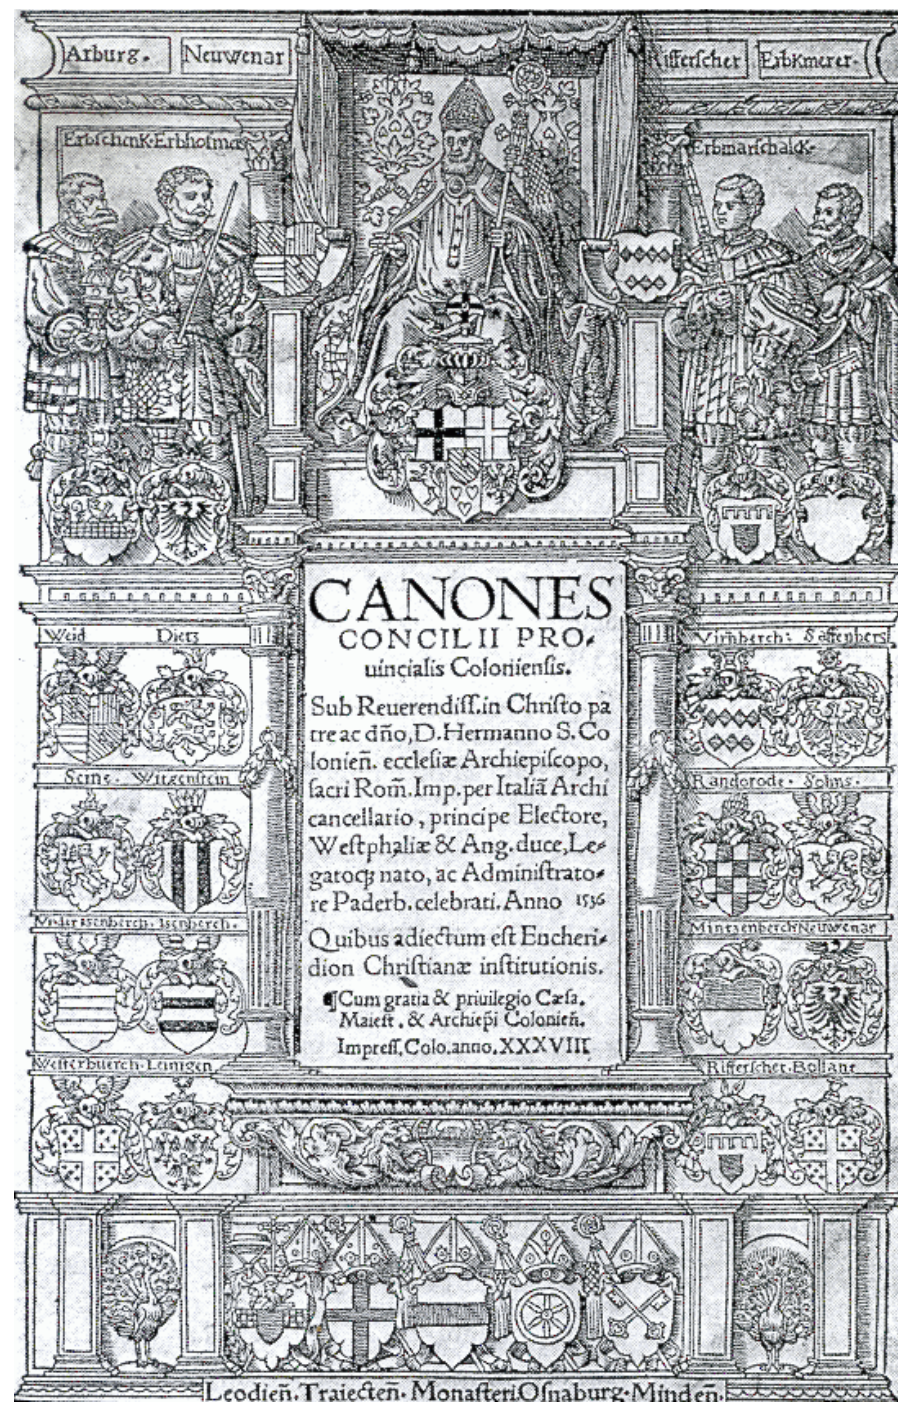 Arburg. Neuwenar
Rifferscher Erbkmerer.
Erbschenk. Erbhofme
Erbmarschalck.
CANONES
CONCILII PRO-
uincialis Coloniensis.
Sub Reuerendiss. in Christo pa
tre ac dño, D. Hermanno S. Co
lonieñ. ecclesiæ Archiepiscopo,
sacri Rom̃. Imp. per Italiã Archi
cancellario, principe Electore,
Westphaliæ & Ang. duce, Le-
gatoqꝫ nato, ac Administrato-
re Paderb. celebrati. Anno 1536
Quibus adiectum est Encheri-
dion Christianæ institutionis.
¶Cum gratia & priuilegio Cæsa.
Maiest. & Archiep̃i Colonieñ.
Impress. Colo. anno. XXXVIII
Weid Dietz
Seine. Witgenstein
Niderisenberch. Isenberch.
Westerbuerch. Leinigen
Virnberch: Saffenberg
Randorode. Solms.
Mintzenberch Neuwenar
Rifferschet. Bollant
Leodieñ. Traiecteñ. Monasteri Osnaburg. Mindeñ.